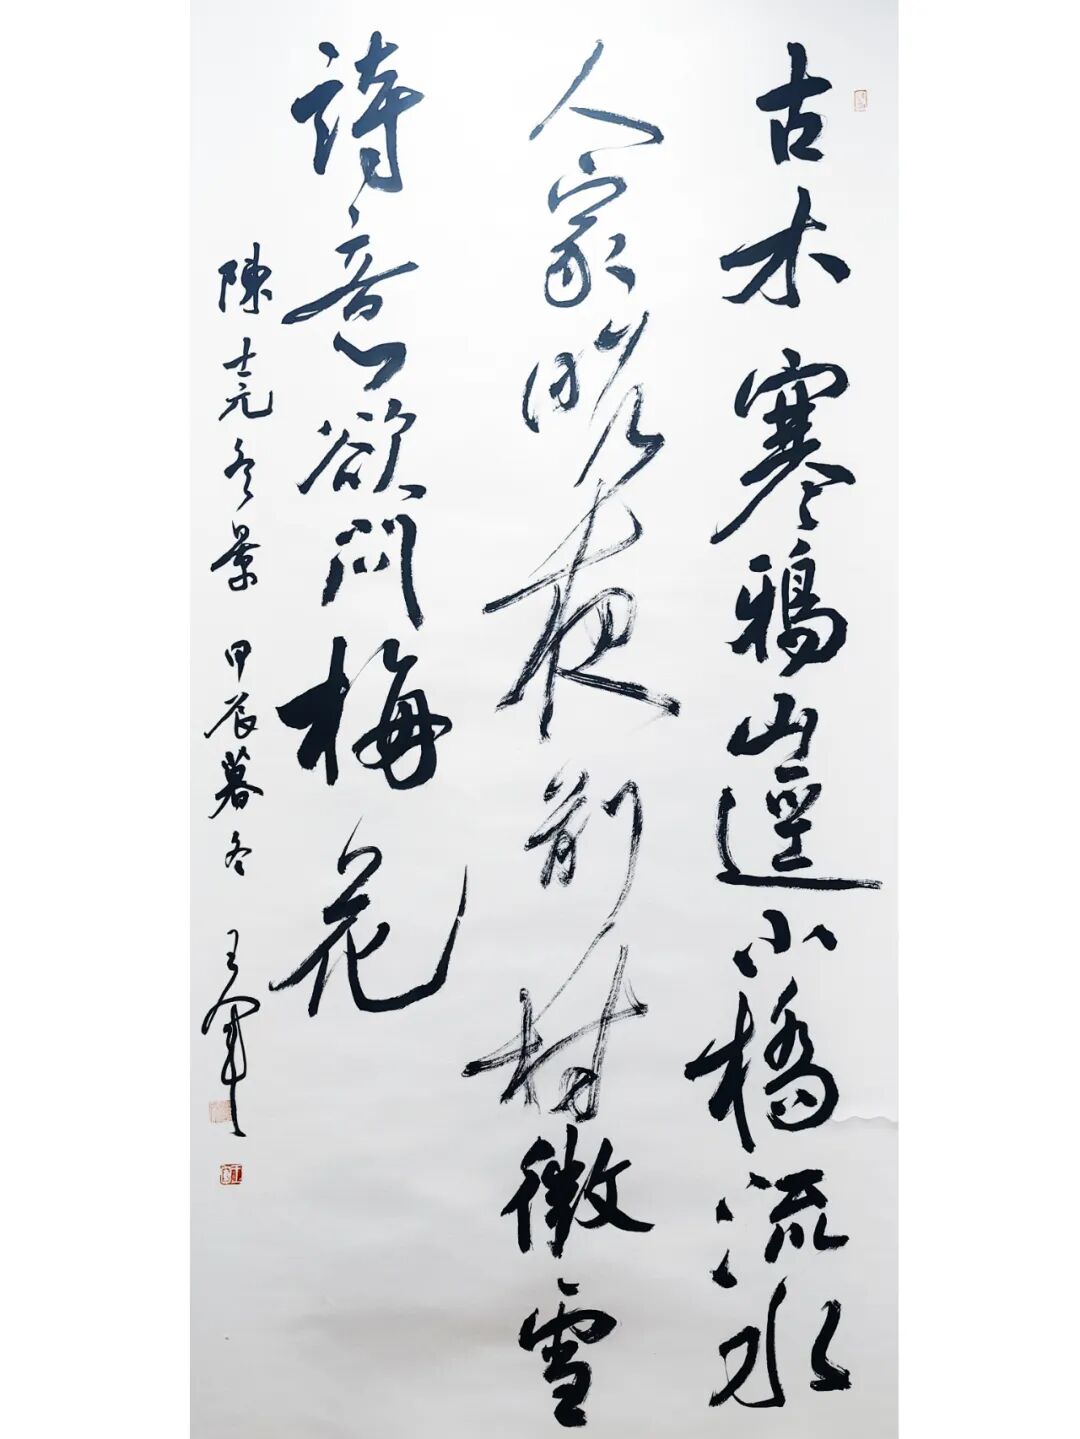 古木寒鴉山逕小橋流水
人家昨夜前村微雪
詩意欲問梅花
陳士元冬景 甲辰暮冬 王軍